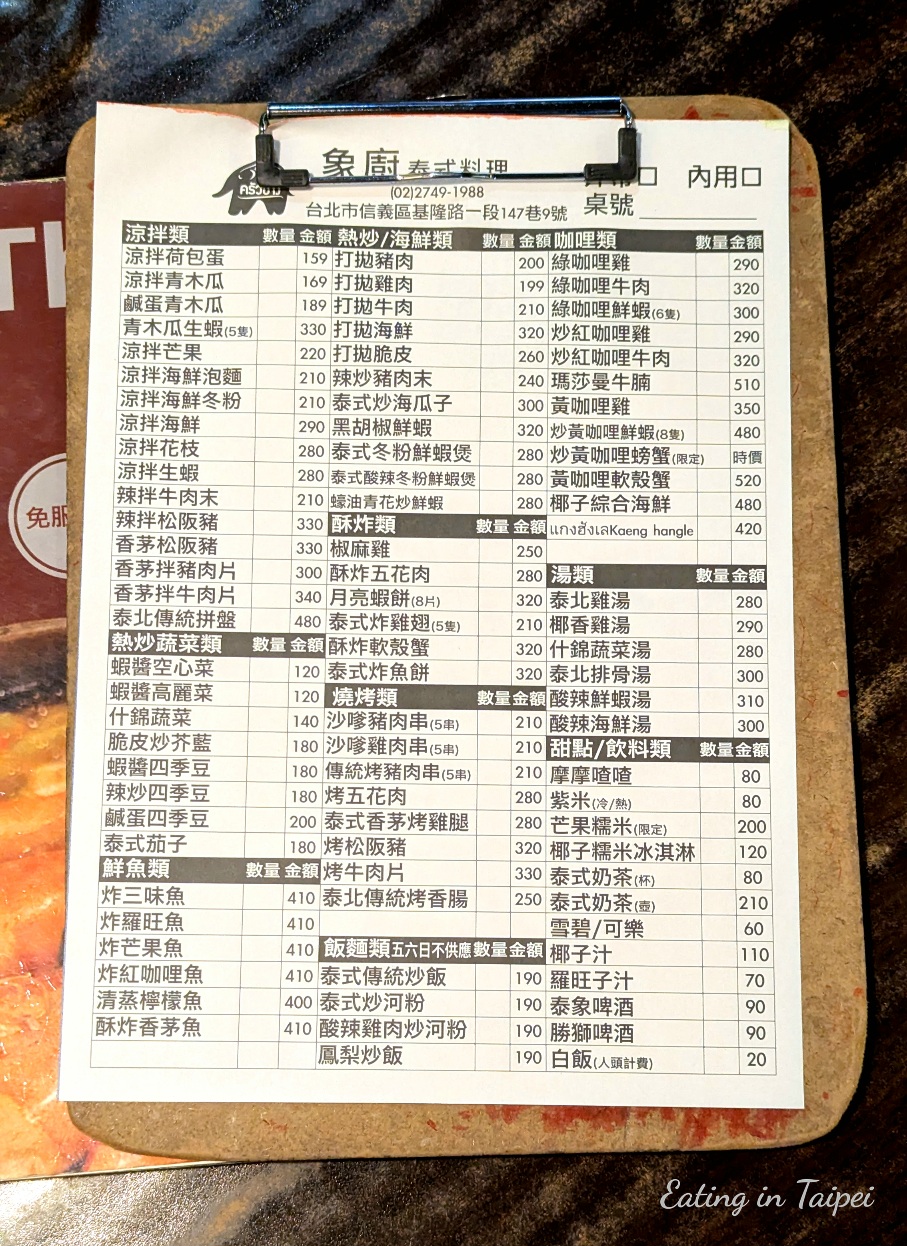 象廚 泰式料理
ครัวช้าง
(02)2749-1988
台北市信義區基隆路一段147巷9號
內用口
桌號
涼拌類 數量 金額
涼拌荷包蛋 159
涼拌青木瓜 169
鹹蛋青木瓜 189
青木瓜生蝦(5隻) 330
涼拌芒果 220
涼拌海鮮泡麵 210
涼拌海鮮冬粉 210
涼拌海鮮 290
涼拌花枝 280
涼拌生蝦 280
辣拌牛肉末 210
辣拌松阪豬 330
香茅松阪豬 330
香茅拌豬肉片 300
香茅拌牛肉片 340
泰北傳統拼盤 480
熱炒蔬菜類 數量 金額
蝦醬空心菜 120
蝦醬高麗菜 120
什錦蔬菜 140
脆皮炒芥藍 180
蝦醬四季豆 180
辣炒四季豆 180
鹹蛋四季豆 200
泰式茄子 180
鮮魚類 數量 金額
炸三味魚 410
炸羅旺魚 410
炸芒果魚 410
炸紅咖哩魚 410
清蒸檸檬魚 400
酥炸香茅魚 410
熱炒/海鮮類 數量 金額
打拋豬肉 200
打拋雞肉 199
打拋牛肉 210
打拋海鮮 320
打拋脆皮 260
辣炒豬肉末 240
泰式炒海瓜子 300
黑胡椒鮮蝦 320
泰式冬粉鮮蝦煲 280
泰式酸辣冬粉鮮蝦煲 280
蠔油青花炒鮮蝦 280
酥炸類 數量 金額
椒麻雞 250
酥炸五花肉 280
月亮蝦餅(8片) 320
泰式炸雞翅(5隻) 210
酥炸軟殼蟹 320
泰式炸魚餅 320
燒烤類 數量 金額
沙嗲豬肉串(5串) 210
沙嗲雞肉串(5串) 210
傳統烤豬肉串(5串) 210
烤五花肉 280
泰式香茅烤雞腿 280
烤松阪豬 320
烤牛肉片 330
泰北傳統烤香腸 250
飯麵類五六日不供應 數量 金額
泰式傳統炒飯 190
泰式炒河粉 190
酸辣雞肉炒河粉 190
鳳梨炒飯 190
咖哩類 數量 金額
綠咖哩雞 290
綠咖哩牛肉 320
綠咖哩鮮蝦(6隻) 300
炒紅咖哩雞 290
炒紅咖哩牛肉 320
瑪莎曼牛腩 510
黃咖哩雞 350
炒黃咖哩鮮蝦(8隻) 480
炒黃咖哩螃蟹(限定) 時價
黃咖哩軟殼蟹 520
椰子綜合海鮮 480
แกงฮังเลKaeng hangle 420
湯類 數量 金額
泰北雞湯 280
椰香雞湯 290
什錦蔬菜湯 280
泰北排骨湯 300
酸辣鮮蝦湯 310
酸辣海鮮湯 300
甜點/飲料類 數量 金額
摩摩喳喳 80
紫米(冷/熱) 80
芒果糯米(限定) 200
椰子糯米冰淇淋 120
泰式奶茶(杯) 80
泰式奶茶(壺) 210
雪碧/可樂 60
椰子汁 110
羅旺子汁 70
泰象啤酒 90
勝獅啤酒 90
白飯(人頭計費) 20
免服
Eating in Taipei